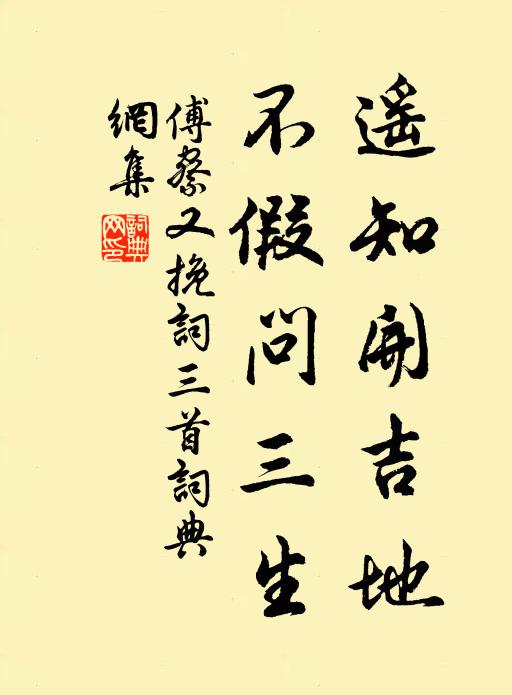 遥知開吉地
不假問三生
傅察又挽詞三首詞典
網集
詞典
网印